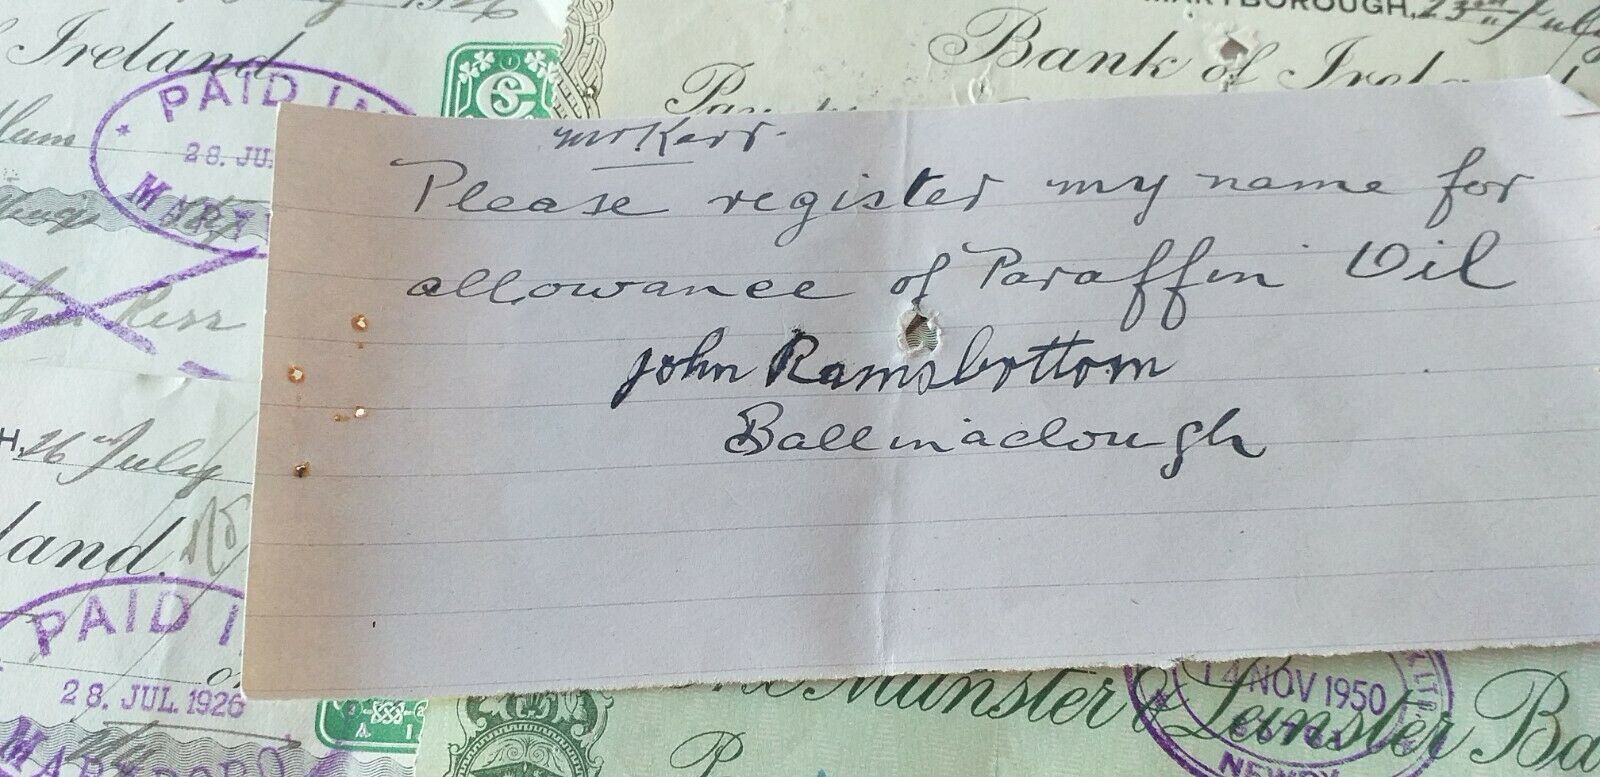 July 1926
MARYBOROUGH, 23rd July
Ireland
Bank of Ireland
PAID IN
28. JU
MARY
Mr Kerr.
Please register my name for
allowance of Paraffin Oil
John Ramsbottom
Ballinaclough
Kerr
H, 26 July
land.
PAID I
28. JUL 1926
MARYBORO
Munster & Leinster Ba
14 NOV 1950